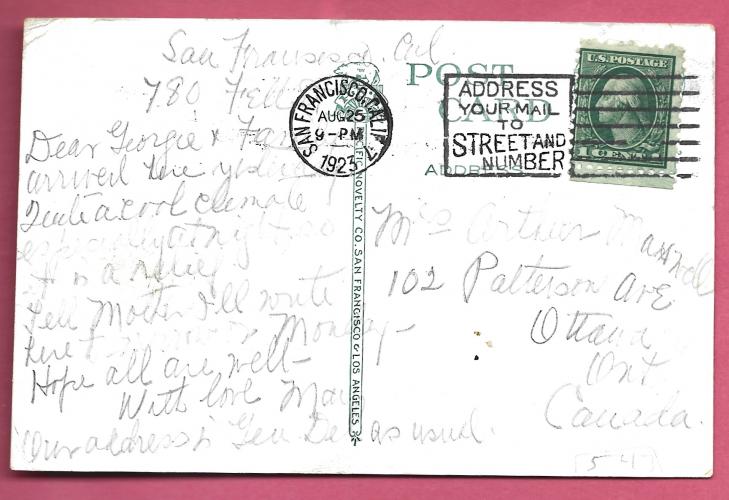 San Francisco. Cal.
780 Fell
Dear Georgie &
arrived here yesterday
Quite a cool climate
especially at night so
it is a relief
Tell Mother I'll write
her Monday-
Hope all are well-
With love
Our address is Gen Del as usual.
POST CARD
ADDRESS
SAN FRANCISCO, CALIF.
AUG 25
9-PM
1923
ADDRESS
YOUR MAIL
TO
STREET AND
NUMBER
U.S. POSTAGE
1 CENT 1
PACIFIC NOVELTY CO. SAN FRANCISCO & LOS ANGELES
Mrs Arthur Maxwell
102 Patterson Ave
Ottawa
Ont
Canada.
547